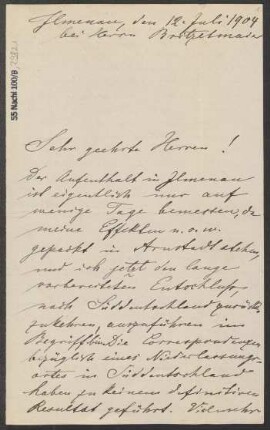 Ilmenau, den 12. Juli 1904
bei Herrn
55 Nachl 100/B,
Sehr geehrte Herren!
Der Aufenthalt in Ilmenau
ist eigentlich nur auf
wenige Tage bemessen, da
meine Effekten u. s. w.
gepackt in Arnstadt stehen,
und ich jetzt den lange
vorbereiteten Entschluss,
nach Süddeutschland zurück-
zukehren, auszuführen im
Begriff bin. Die Correspondenzen
bezüglich eines Niederlassungs-
ortes in Süddeutschland
haben zu keinem definitiven
Resultat geführt. Vielmehr